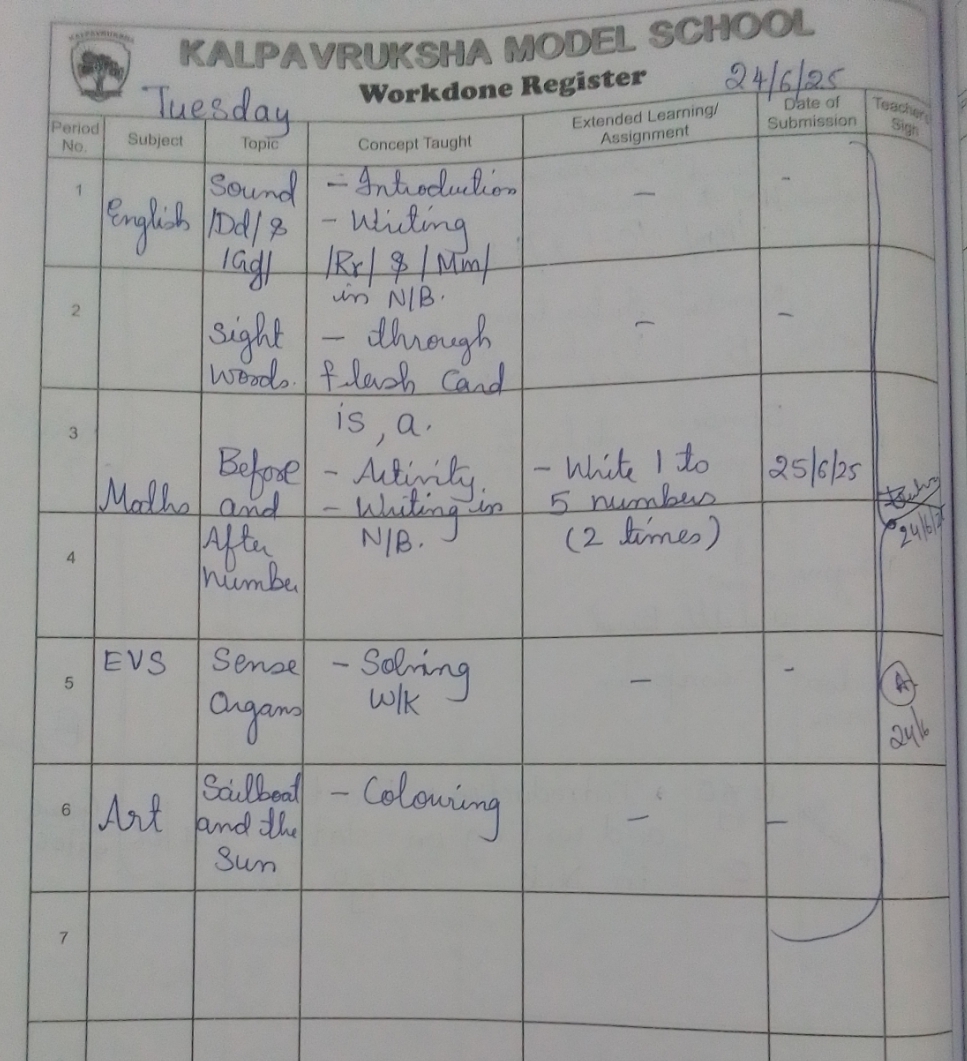 KALPAVRUKSHA
KALPAVRUKSHA MODEL SCHOOL
Workdone Register
24/6/25
Tuesday
Period No.
Subject
Topic
Concept Taught
Extended Learning/ Assignment
Date of Submission
Teacher Sign
1
English
Sound
/Dd/ &
/Gg/
- Introduction
- Writing
/Rr/ & /Mm/
in N/B.
-
-
2
Sight
words.
- through
flash Card
is, a.
-
-
3
Maths
Before
and
After
number
- Activity.
- Writing in
N/B.
- Write 1 to
5 numbers
(2 times)
25/6/25
24/6/25
4
5
EVS
Sense
Organs
- Solving
W/K
-
-
A
24/6
6
Art
Sailboat
and the
Sun
- Colouring
-
-
7